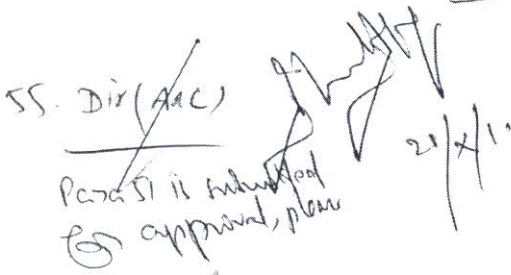 55. Dir (A&C)
Para 51 is submitted
for approval, please
21/X/1